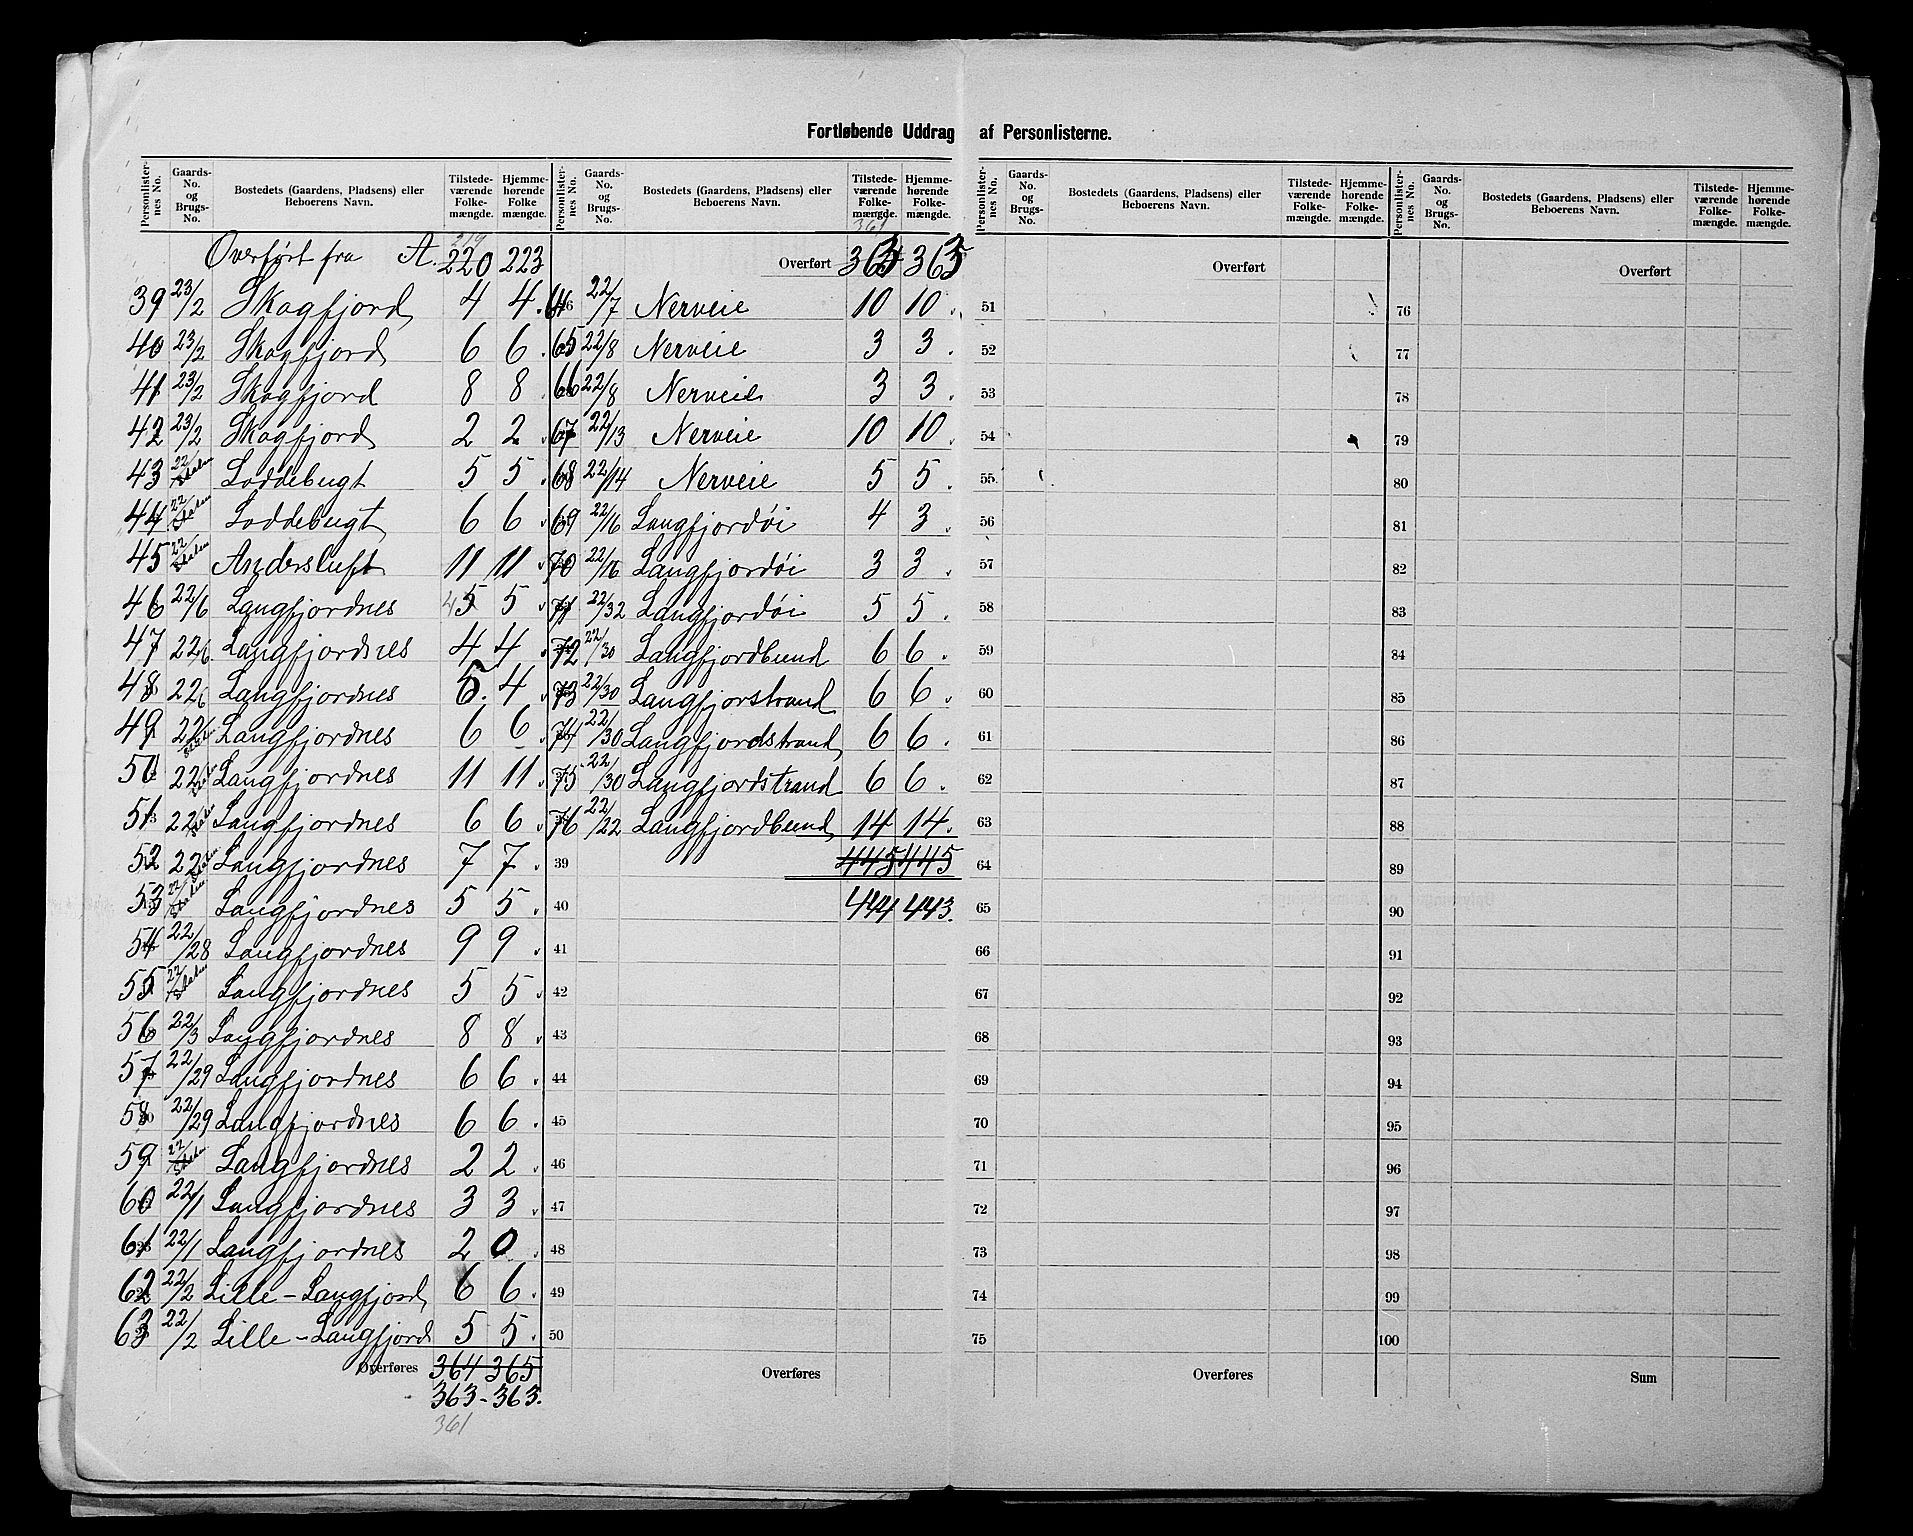 Fortløbende Uddrag af Personlisterne.
Personlisternes No. Gaards-No. og Brugs-No. Bostedets (Gaardens, Pladsens) eller Beboerens Navn. Tilstedeværende Folkemængde. Hjemmehørende Folkemængde.
219
Overført fra A. 220 223
39 23/2 Skogfjord 4 4
40 23/2 Skogfjord 6 6
41 23/2 Skogfjord 8 8
42 23/2 Skogfjord 2 2
43 22/Staten Loddebugt 5 5
44 22/Staten Loddebugt 6 6
45 22/Staten Andersluft 11 11
46 22/6 Langfjordnes 4 5 5
47 22/6 Langfjordnes 4 4
48 22/6 Langfjordnes 5 4
49 22/6 Langfjordnes 6 6
50 22/Staten Langfjordnes 11 11
51 22/Staten Langfjordnes 6 6
52 22/Staten Langfjordnes 7 7
53 22/Staten Langfjordnes 5 5
54 22/28 Langfjordnes 9 9
55 22/Staten Langfjordnes 5 5
56 22/3 Langfjordnes 8 8
57 22/29 Langfjordnes 6 6
58 22/29 Langfjordnes 6 6
59 22/Staten Langfjordnes 2 2
60 22/1 Langfjordnes 3 3
61 22/1 Langfjordnes 2 0
62 22/2 Lille-Langfjord 6 6
63 22/2 Lille-Langfjord 5 5
Overføres 364 365
363 - 363.
361
Personlisternes No. Gaards-No. og Brugs-No. Bostedets (Gaardens, Pladsens) eller Beboerens Navn. Tilstedeværende Folkemængde. Hjemmehørende Folkemængde.
361
Overført 363 363
64 22/7 Nerveie 10 10
65 22/8 Nerveie 3 3
66 22/8 Nerveie 3 3
67 22/13 Nerveie 10 10
68 22/14 Nerveie 5 5
69 22/16 Langfjordøi 4 3
70 22/16 Langfjordøi 3 3
71 22/32 Langfjordøi 5 5
72 22/30 Langfjordbund 6 6
73 22/30 Langfjorstrand 6 6
74 22/30 Langfjordstrand 6 6
75 22/30 Langfjordstrand 6 6
76 22/22 Langfjordbund 14 14
39 445 445
40 444 443.
41
42
43
44
45
46
47
48
49
50
Overføres
Personlisternes No. Gaards-No. og Brugs-No. Bostedets (Gaardens, Pladsens) eller Beboerens Navn. Tilstedeværende Folkemængde. Hjemmehørende Folkemængde.
Overført
51
52
53
54
55
56
57
58
59
60
61
62
63
64
65
66
67
68
69
70
71
72
73
74
75
Overføres
Personlisternes No. Gaards-No. og Brugs-No. Bostedets (Gaardens, Pladsens) eller Beboerens Navn. Tilstedeværende Folkemængde. Hjemmehørende Folkemængde.
Overført
76
77
78
79
80
81
82
83
84
85
86
87
88
89
90
91
92
93
94
95
96
97
98
99
100
Sum